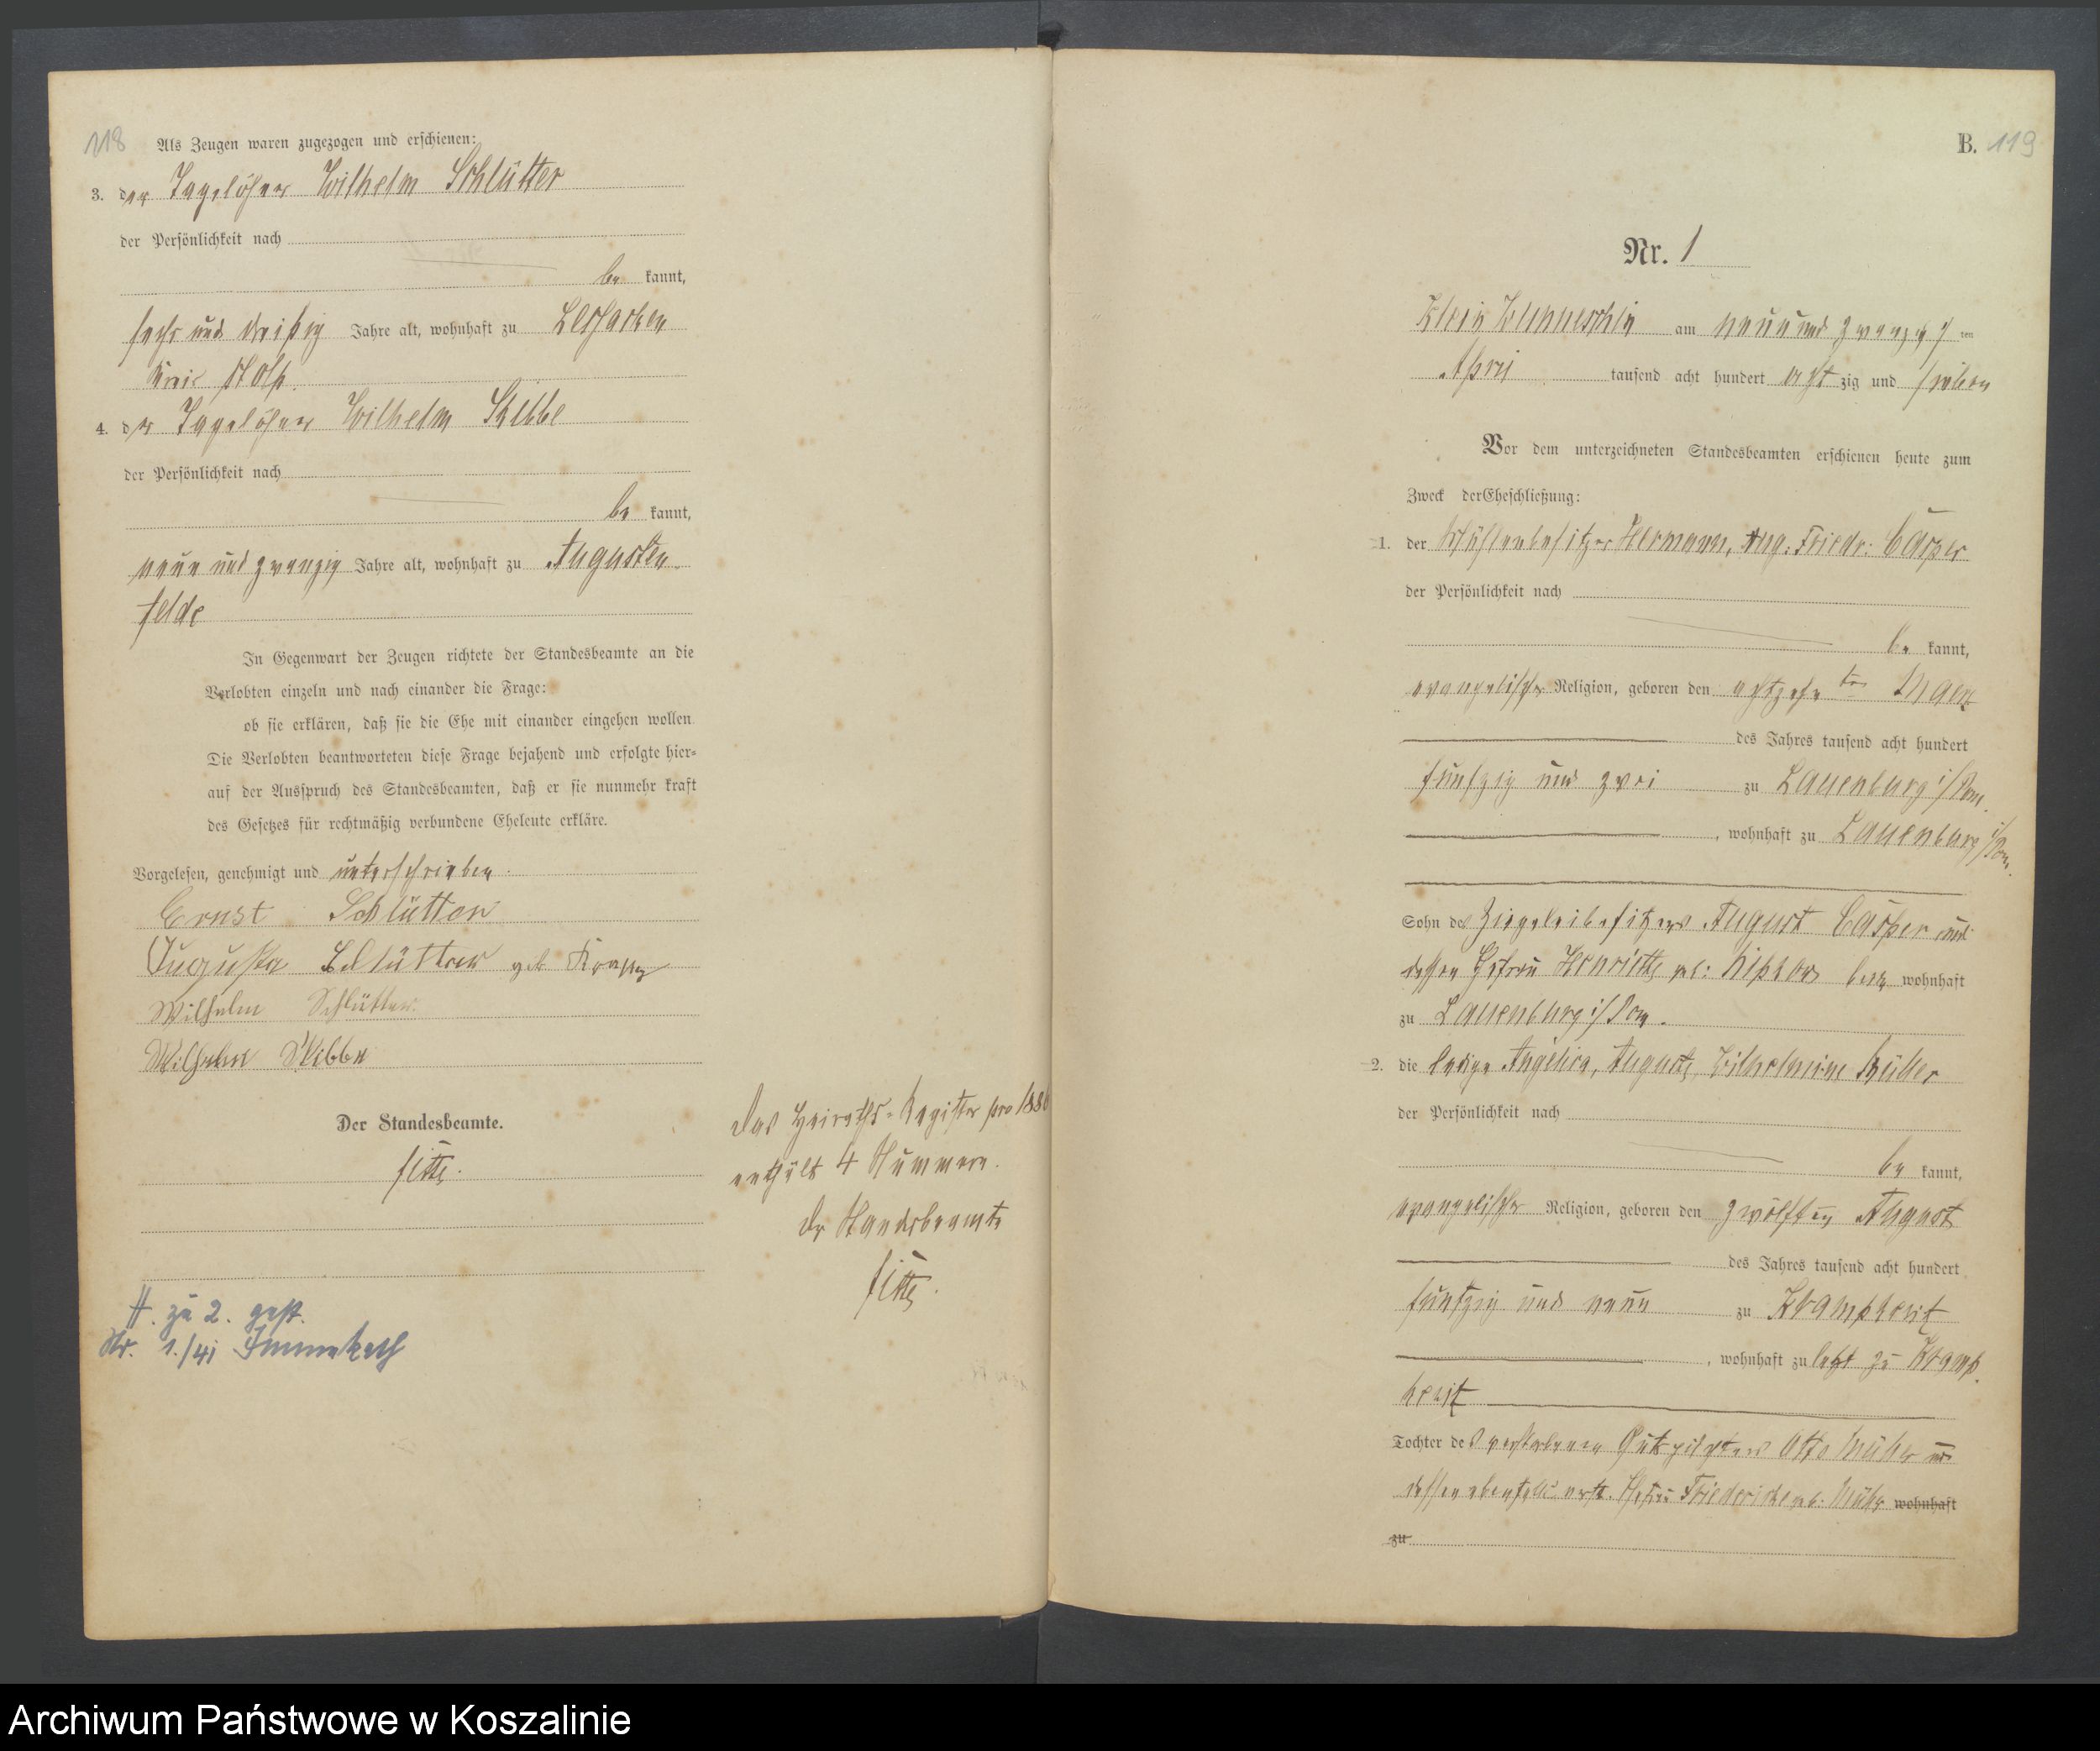 118
Als Zeugen waren zugezogen und erschienen:
3. der Tagelöhner Wilhelm Schlütter
der Persönlichkeit nach
be kannt,
sechs und dreißig Jahre alt, wohnhaft zu
Kreis Stolp.
4. der Tagelöhner Wilhelm Skibbe
der Persönlichkeit nach
be kannt,
neun und zwanzig Jahre alt, wohnhaft zu Augusten-
felde
In Gegenwart der Zeugen richtete der Standesbeamte an die
Verlobten einzeln und nach einander die Frage:
ob sie erklären, daß sie die Ehe mit einander eingehen wollen
Die Verlobten beantworteten diese Frage bejahend und erfolgte hier-
auf der Ausspruch des Standesbeamten, daß er sie nunmehr kraft
des Gesetzes für rechtmäßig verbundene Eheleute erkläre.
Vorgelesen, genehmigt und unterschrieben.
Ernst Schlütter
Augusta Schlütter geb.
Wilhelm Schlütter.
Wilhelm Skibbe
Der Standesbeamte.
Das Heiraths-Register pro 1886
enthält 4 Nummern.
Der Standesbeamte
zu 2. gest.
Nr. 1./41
B. 119
Nr. 1
Klein am neunundzwanzigsten
April tausend acht hundert achtzig und sieben
Vor dem unterzeichneten Standesbeamten erschienen heute zum
Zweck der Eheschließung:
1. der Mühlenbesitzer Hermann, Aug. Friedr. Casper
der Persönlichkeit nach
be kannt,
evangelischer Religion, geboren den achtzehnten Maerz
des Jahres tausend acht hundert
fünfzig und zwei zu Lauenburg i/Pom.
, wohnhaft zu Lauenburg i/Pom.
Sohn des Ziegeleibesitzers August Casper und
dessen Ehefrau Henriette geb: wohnhaft
zu Lauenburg i/Pom.
2. die ledige Angelica, Auguste, Wilhelmine Müller
der Persönlichkeit nach
be kannt,
evangelischer Religion, geboren den zwölften August
des Jahres tausend acht hundert
fünfzig und neun zu Krampkewitz
, wohnhaft zu letzt zu Kramp-
kewitz
Tochter des verstorbenen Gutspächters Otto Müller und
dessen ebenfalls verst. Ehefrau Friederike geb: wohnhaft
zu
Archiwum Państwowe w Koszalinie